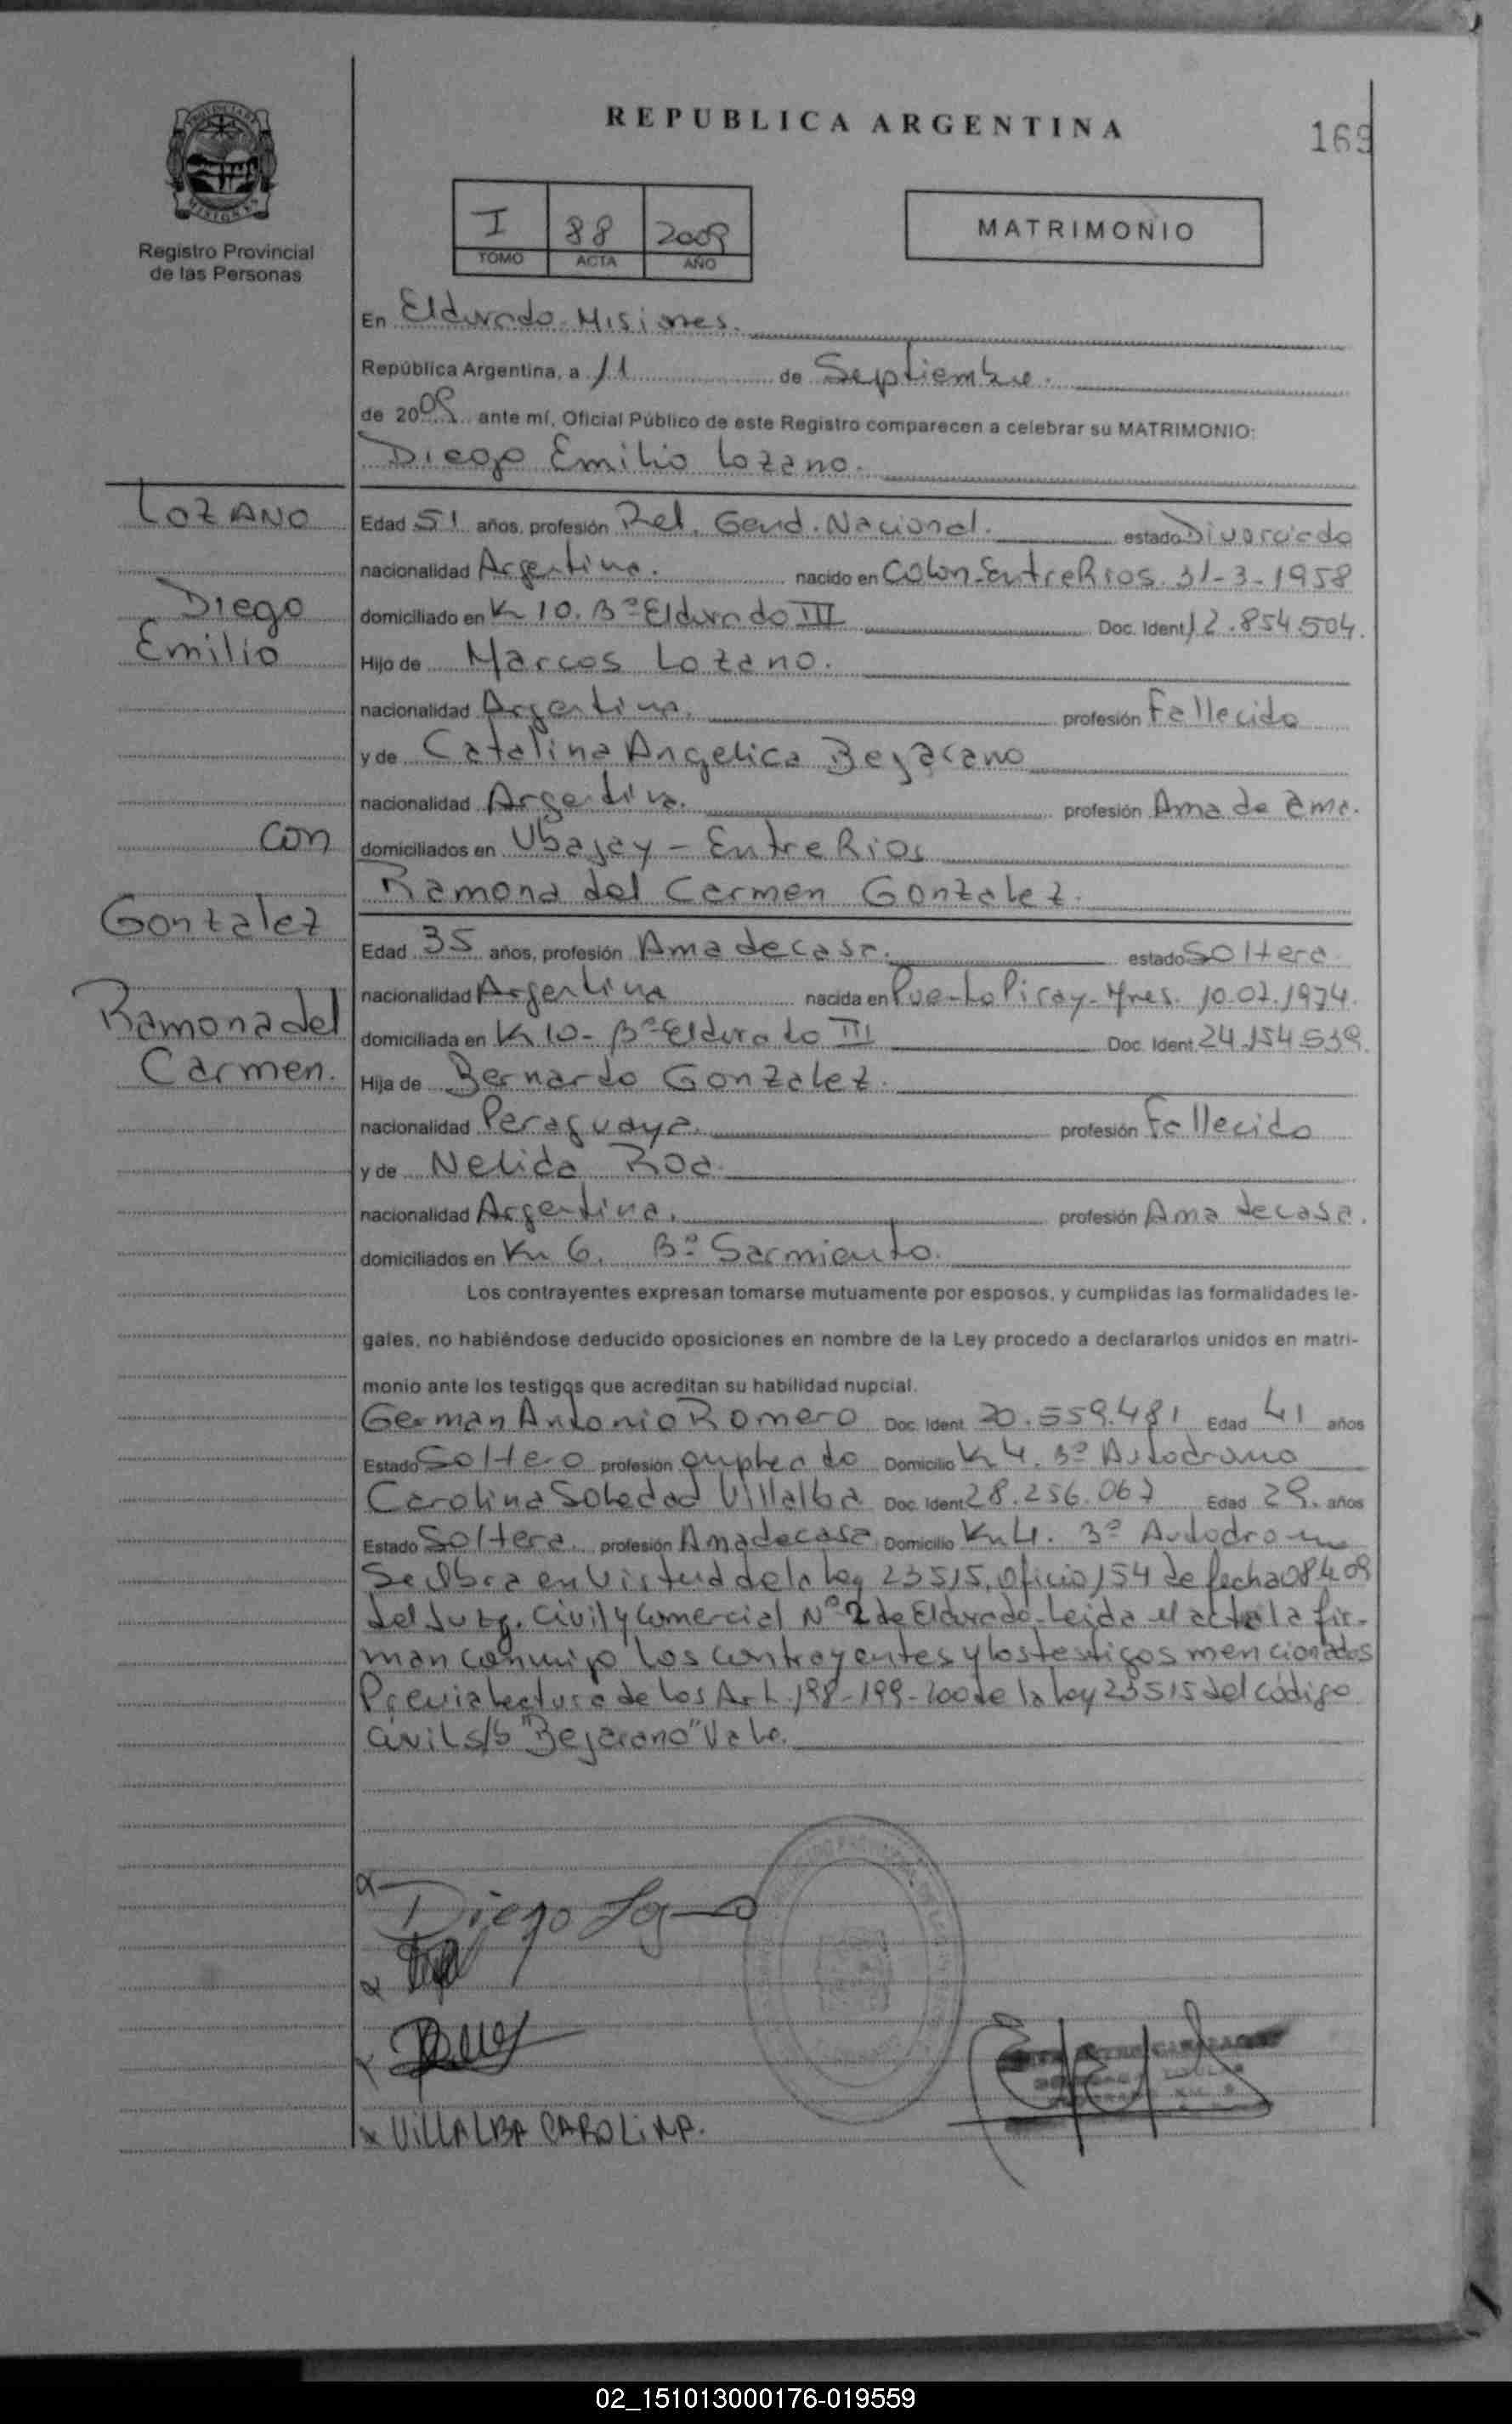 REPUBLICA ARGENTINA
169
PROVINCIA DE MISIONES
Registro Provincial
de las Personas
I 88 2009
TOMO ACTA AÑO
MATRIMONIO
En Eldorado - Misiones.
República Argentina, a 11 de Septiembre.
de 2009 ante mí, Oficial Público de este Registro comparecen a celebrar su MATRIMONIO:
Diego Emilio Lozano.
LOZANO
Diego
Emilio
con
Gonzalez
Ramona del
Carmen.
Edad 51 años, profesión Ret. Gend. Nacional. estado Divorciado
nacionalidad Argentina. nacido en Colon-Entre Rios. 31-3-1958
domiciliado en K 10. Bº Eldorado III Doc. Ident. 12.854.504.
Hijo de Marcos Lozano.
nacionalidad Argentina. profesión Fallecido
y de Catalina Angelica Bejarano
nacionalidad Argentina. profesión Ama de
domiciliados en Ubajay - Entre Rios
Ramona del Carmen Gonzalez.
Edad 35 años, profesión Ama de casa. estado Soltera
nacionalidad Argentina nacida en Puerto Piray - Mnes. 10.07.1974.
domiciliada en K 10 - Bº Eldorado III Doc. Ident. 24.154.539.
Hija de Bernardo Gonzalez.
nacionalidad Paraguaya. profesión Fallecido
y de Nelida Roa.
nacionalidad Argentina. profesión Ama de casa.
domiciliados en Km 6. Bº Sarmiento.
Los contrayentes expresan tomarse mutuamente por esposos, y cumplidas las formalidades le-
gales, no habiéndose deducido oposiciones en nombre de la Ley procedo a declararlos unidos en matri-
monio ante los testigos que acreditan su habilidad nupcial.
German Antonio Romero Doc. Ident. 20.559.481 Edad 41 años
Estado Soltero profesión empleado Domicilio K 4. Bº Autodromo
Carolina Soledad Villalba Doc. Ident. 28.256.067 Edad 29. años
Estado Soltera. profesión Ama de casa Domicilio Km 4. Bº Autodromo
Se labra en Virtud de la ley 23515. Oficio 154 de fecha 08 4 09
del Juzg. Civil y Comercial Nº 2 de Eldorado - Leida el acta la fir-
man conmigo los contrayentes y los testigos mencionados
Previa lectura de los Art. 198-199-200 de la ley 23515 del código
civil s/b "Bejarano" Vale.
Diego Lozano
VILLALBA CAROLINA.
02_151013000176-019559